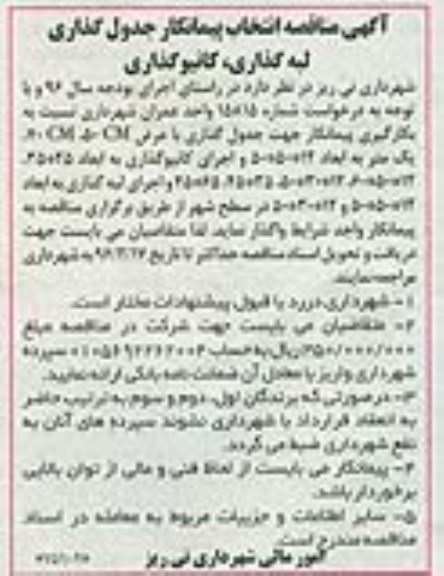 آگهی مناقصه انتخاب پیمانکار جدول گذاری
لبه گذاری، کانیو گذاری
شهرداری نی ریز در نظر دارد در راستای اجرای بودجه سال ۹۶ و با
توجه به درخواست شماره ۱۵۸۱۵ واحد عمران شهرداری نسبت به
بکارگیری پیمانکار جهت جدول گذاری با عرض CM ۵۰، CM ۴۰،
یک متر به ابعاد و اجرای کانیوگذاری به ابعاد
و اجرای لبه گذاری به ابعاد
در سطح شهر از طریق برگزاری مناقصه به
پیمانکار واحد شرایط واگذار نماید. لذا متقاضیان می بایست جهت
دریافت و تحویل اسناد مناقصه حداکثر تا تاریخ به شهرداری
مراجعه نمایند.
۱- شهرداری در رد یا قبول پیشنهادات مختار است.
۲- متقاضیان می بایست جهت شرکت در مناقصه مبلغ
ریال به حساب سپرده
شهرداری واریز یا معادل آن ضمانت نامه بانکی ارائه نمایید.
۳- در صورتی که برندگان اول، دوم و سوم به ترتیب حاضر
به انعقاد قرارداد با شهرداری نشوند سپرده های آنان به
نفع شهرداری ضبط می گردد.
۴- پیمانکار می بایست از لحاظ فنی و مالی از توان بالایی
برخوردار باشد.
۵- سایر اطلاعات و جزییات مربوط به معامله در اسناد
مناقصه مندرج است.
امور مالی شهرداری نی ریز